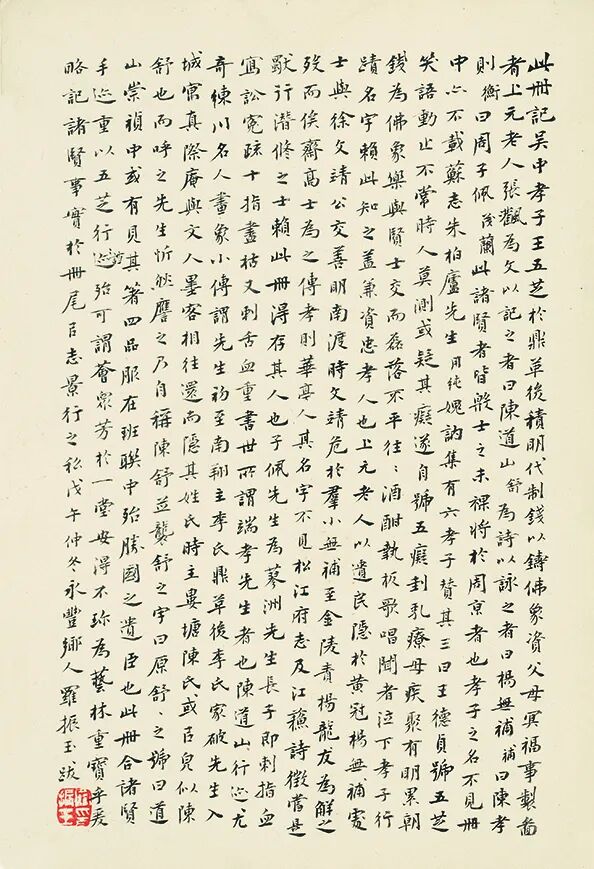 此冊記吳中孝子王五芝於鼎革後積明代制錢以鑄佛象資父母冥福事製圖
者上元老人張颿為文以記之者曰陳道山舒為詩以詠之者曰楊無補補曰陳孝
則衡曰周子佩茂蘭此諸賢者皆殷士之未祼將於周京者也孝子之名不見冊
中亦不載蘇志朱柏廬先生用純媿訥集有六孝子贊其三曰王德貞號五芝
笑語動止不常時人莫測或疑其癡遂自號五癡刲乳療母疾聚有明累朝
錢為佛象樂與賢士交而磊落不平往〻酒酣執板歌唱聞者泣下孝子行
蹟名字賴此知之蓋兼資忠孝人也上元老人以遺民隱於黃冠楊無補處
士與徐文靖公交善明南渡時文靖危於羣小無補至金陵責楊龍友為解之
歿而俟齋高士為之傳孝則華亭人其名字不見松江府志及江蘇詩徵當是
獸行潛修之士賴此冊得存其人也子佩先生為蓼洲先生長子即刺指血
寫訟冤疏十指盡枯又刺舌血重書世所謂端孝先生者也陳道山行迹尤
奇練川名人畫象小傳謂先生初至南翔主李氏鼎革後李氏家破先生入
城寓真際庵與文人墨客相往還尚隱其姓氏時主婁塘陳氏或㠯兒似陳
舒也而呼之先生忻然應之乃自稱陳舒並襲舒之字曰原舒〻之號曰道
山崇禎中或有見其著四品服在班聯中殆勝國之遺臣也此冊合諸賢
手迹重以五芝行迹殆可謂薈眾芳於一堂安得不珍為藝林重寶乎爰
略記諸賢事實於冊尾㠯志景行之私戊午仲冬永豐鄉人羅振玉跋